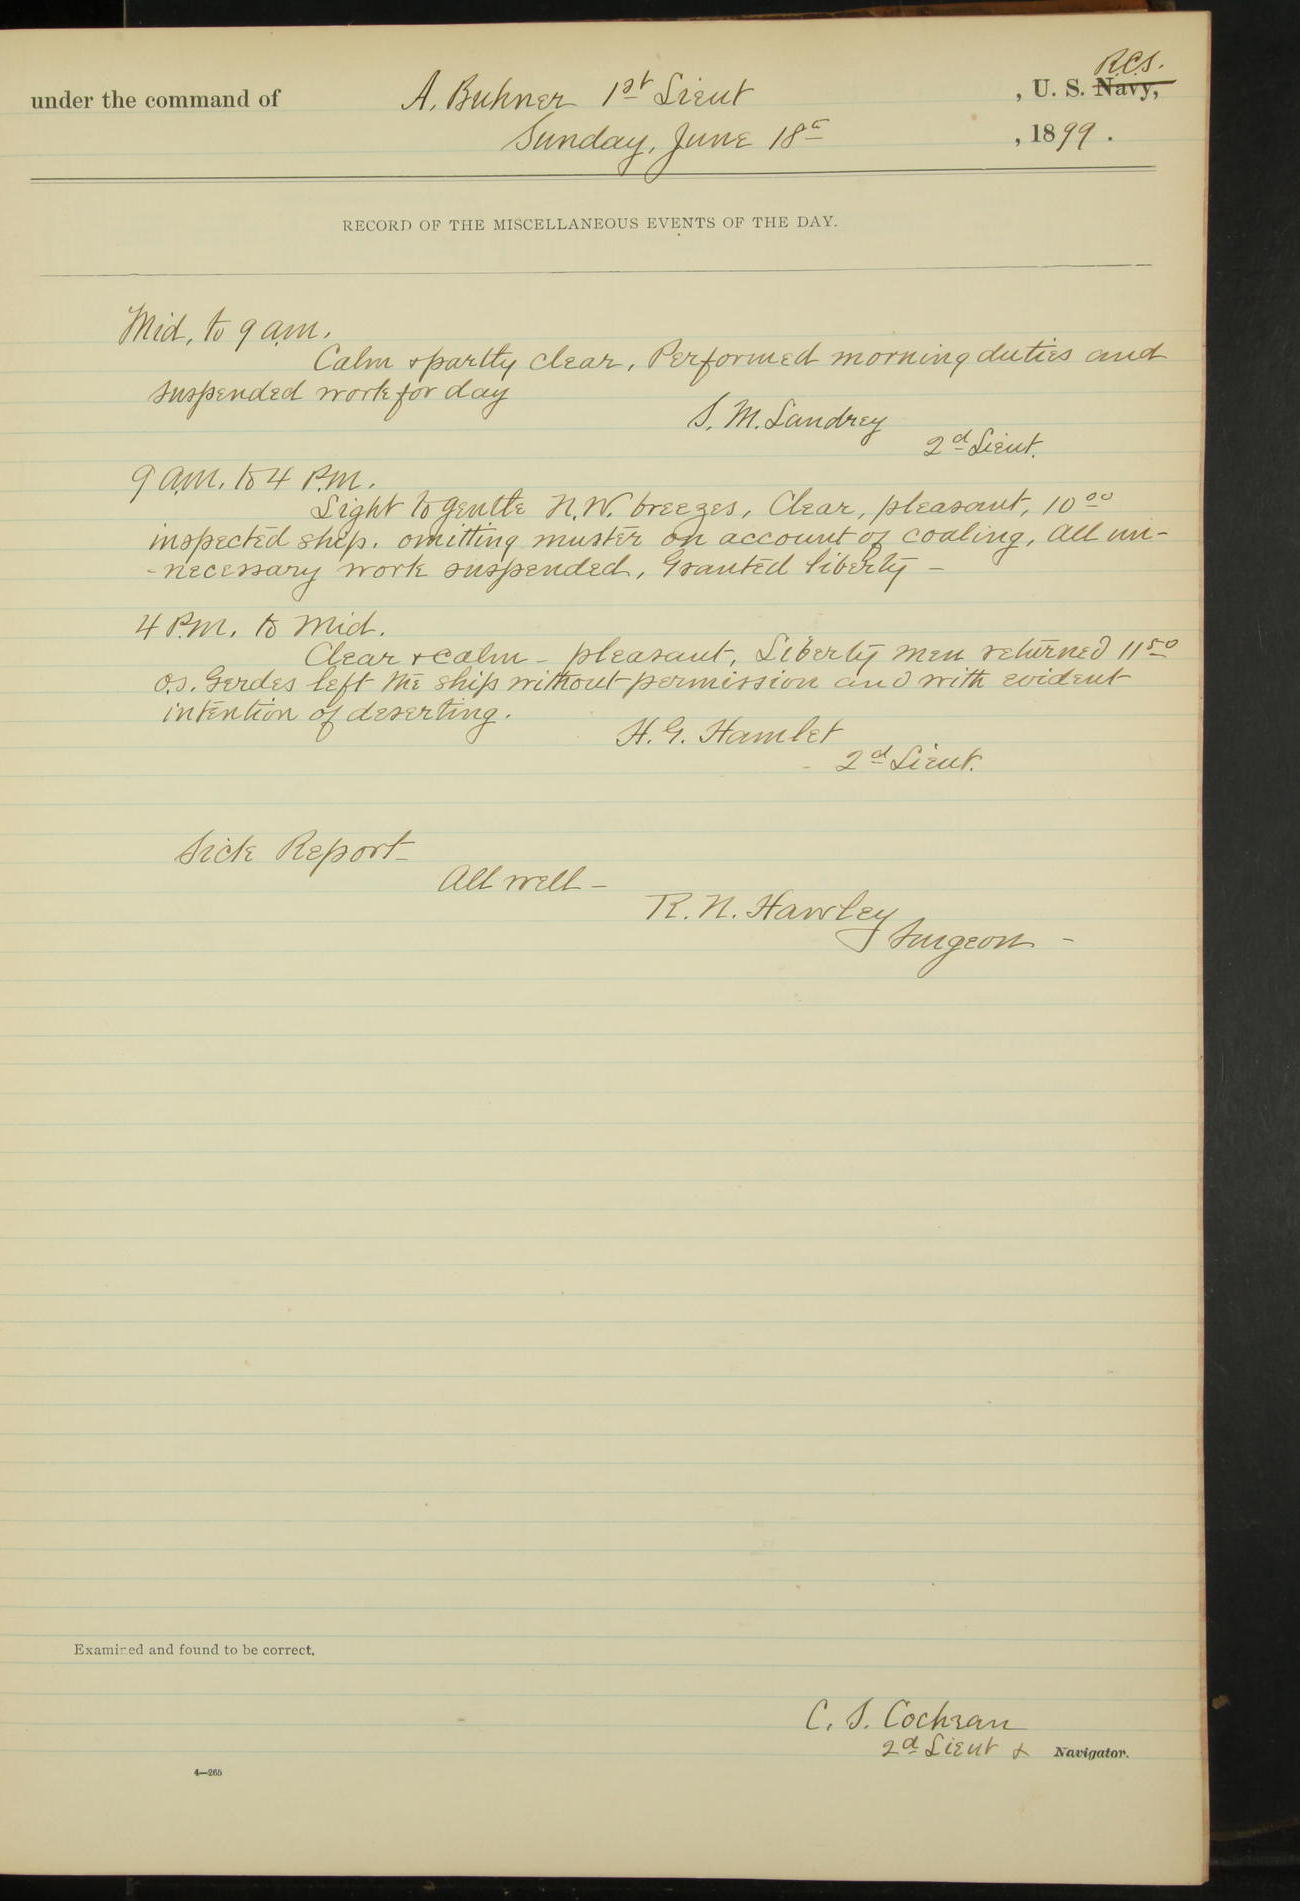 R.C.S.
under the command of A. Buhner 1st Lieut , U. S. Navy,
Sunday, June 18th , 1899 .
RECORD OF THE MISCELLANEOUS EVENTS OF THE DAY.
Mid, to 9 a.m.
Calm & partly clear, Performed morning duties and
suspended work for day
S. M. Landrey
2d Lieut.
9 a.m. to 4 P.M.
Light to gentle N.W. breezes, Clear, pleasant, 10 00
inspected ship. omitting muster on account of coaling, All un-
-necessary work suspended, Granted liberty -
4 P.M. to Mid.
Clear & calm - pleasant, Liberty men returned 11 50
O.S. Gerdes left the ship without permission and with evident
intention of deserting.
H. G. Hamlet
2d Lieut.
Sick Report
All well -
R. N. Hawley
Surgeon -
Examined and found to be correct.
C. S. Cochran
2d Lieut & Navigator.
4—265